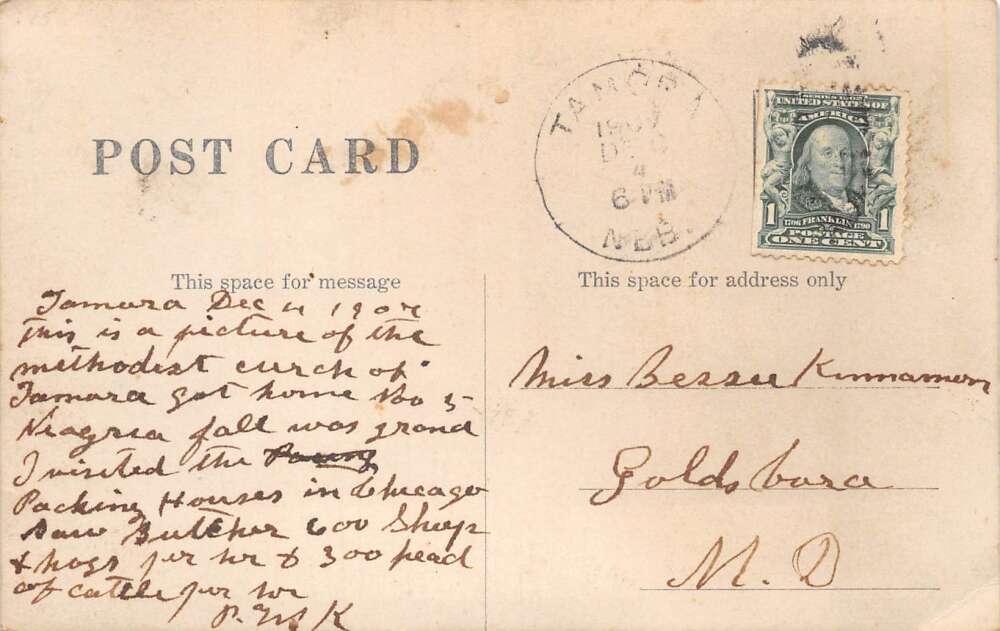 TAMORA
1907
DEC
4
6 PM
NEB.
SERIES 1902
UNITED STATES OF
AMERICA
1 1706 FRANKLIN 1790 1
POSTAGE
ONE CENT
POST CARD
This space for message
Tamora Dec 4 1907
this is a picture of the
methodist curch of
Tamora got home Nov 5
Niagria fall was grand
I visited the
Packing Houses in Chicago
saw Butcher 600 Sheep
& hogs per hr & 300 head
of cattle per hr
K
This space for address only
Miss Bessie Kinnamon
Goldsbora
M. D